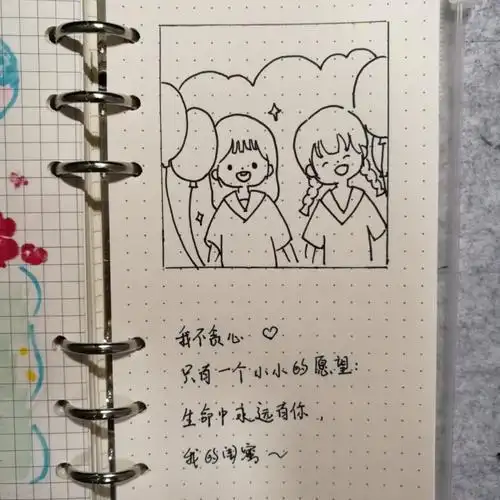 我不贪心 ♡
只有一个小小的愿望：
生命中永远有你，
我的闺蜜～